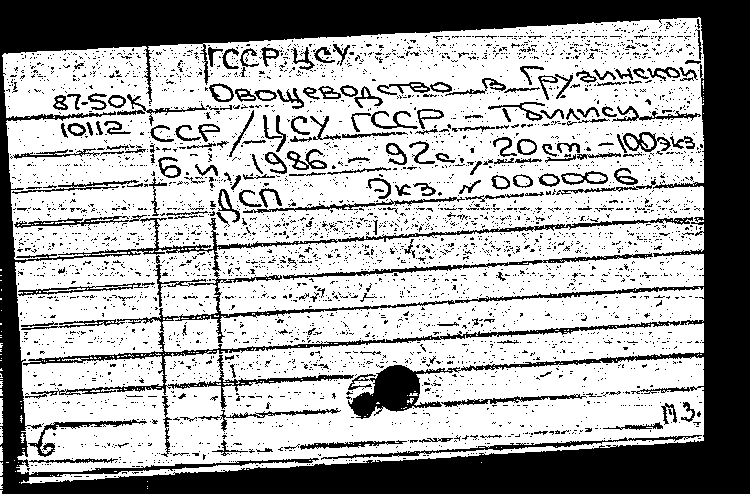 ГССР. ЦСУ.
87-50К Овощеводство в Грузинской
10112 ССР / ЦСУ ГССР. - Тбилиси :-
Б.и., 1986. - 92с.; 20 см. - 100экз.
ДСП Экз. № 000006
6
М.З.